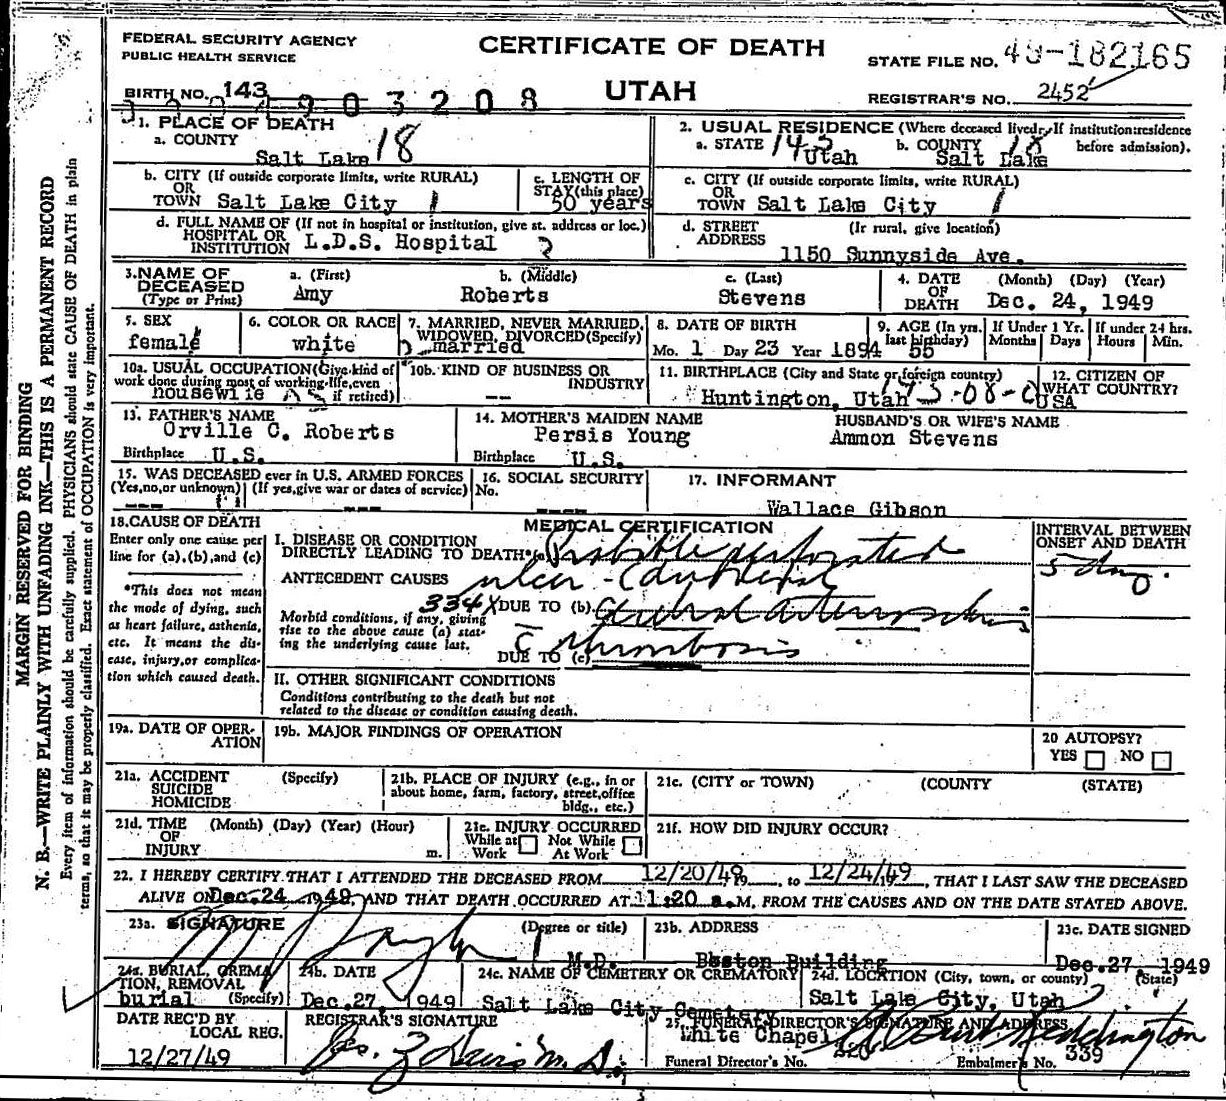 FEDERAL SECURITY AGENCY
PUBLIC HEALTH SERVICE
CERTIFICATE OF DEATH
UTAH
STATE FILE NO. 49-182165
BIRTH NO. 143
903208
REGISTRAR'S NO. 2452
1. PLACE OF DEATH
a. COUNTY
Salt Lake 18
2. USUAL RESIDENCE (Where deceased lived. If institution: residence before admission).
a. STATE 143 Utah b. COUNTY 18 Salt Lake
b. CITY (If outside corporate limits, write RURAL)
OR
TOWN Salt Lake City 1
c. LENGTH OF STAY (this place)
50 years
c. CITY (If outside corporate limits, write RURAL)
OR
TOWN Salt Lake City 1
d. FULL NAME OF (If not in hospital or institution, give st. address or loc.)
HOSPITAL OR
INSTITUTION L.D.S. Hospital 2
d. STREET ADDRESS (If rural, give location)
1150 Sunnyside Ave.
3. NAME OF DECEASED (Type or Print)
a. (First) Amy
b. (Middle) Roberts
c. (Last) Stevens
4. DATE OF DEATH (Month) (Day) (Year)
Dec. 24, 1949
5. SEX
female
6. COLOR OR RACE
white
7. MARRIED, NEVER MARRIED, WIDOWED, DIVORCED (Specify)
married
8. DATE OF BIRTH
Mo. 1 Day 23 Year 1894
9. AGE (In yrs. last birthday)
55
If Under 1 Yr. Months Days
If under 24 hrs. Hours Min.
10a. USUAL OCCUPATION (Give kind of work done during most of working life, even if retired)
housewife
10b. KIND OF BUSINESS OR INDUSTRY
--
11. BIRTHPLACE (City and State or foreign country)
Huntington, Utah
12. CITIZEN OF WHAT COUNTRY?
USA
13. FATHER'S NAME
Orville C. Roberts
Birthplace U.S.
14. MOTHER'S MAIDEN NAME
Persis Young
Birthplace U.S.
HUSBAND'S OR WIFE'S NAME
Ammon Stevens
15. WAS DECEASED ever in U.S. ARMED FORCES
(Yes, no, or unknown) (If yes, give war or dates of service)
--- ---
16. SOCIAL SECURITY No.
----
17. INFORMANT
Wallace Gibson
18. CAUSE OF DEATH
Enter only one cause per line for (a), (b), and (c)
*This does not mean the mode of dying, such as heart failure, asthenia, etc. It means the disease, injury, or complication which caused death.
MEDICAL CERTIFICATION
I. DISEASE OR CONDITION
DIRECTLY LEADING TO DEATH* (a) Probable perforated
ulcer
ANTECEDENT CAUSES
Morbid conditions, if any, giving rise to the above cause (a) stating the underlying cause last.
334X DUE TO (b) Cerebral arteriosclerosis
DUE TO (c) c thrombosis
INTERVAL BETWEEN ONSET AND DEATH
5 days.
II. OTHER SIGNIFICANT CONDITIONS
Conditions contributing to the death but not related to the disease or condition causing death.
19a. DATE OF OPERATION
19b. MAJOR FINDINGS OF OPERATION
20 AUTOPSY?
YES NO
21a. ACCIDENT SUICIDE HOMICIDE (Specify)
21b. PLACE OF INJURY (e.g., in or about home, farm, factory, street, office bldg., etc.)
21c. (CITY or TOWN) (COUNTY) (STATE)
21d. TIME OF INJURY (Month) (Day) (Year) (Hour) m.
21e. INJURY OCCURRED
While at Work Not While At Work
21f. HOW DID INJURY OCCUR?
22. I HEREBY CERTIFY THAT I ATTENDED THE DECEASED FROM 12/20/49, 19, to 12/24/49, 19, THAT I LAST SAW THE DECEASED
ALIVE ON Dec. 24, 1949, AND THAT DEATH OCCURRED AT 11:20 a.M, FROM THE CAUSES AND ON THE DATE STATED ABOVE.
23a. SIGNATURE (Degree or title)
M.D.
23b. ADDRESS
Boston Building
23c. DATE SIGNED
Dec. 27, 1949
24a. BURIAL, CREMATION, REMOVAL (Specify)
burial
24b. DATE
Dec. 27, 1949
24c. NAME OF CEMETERY OR CREMATORY
Salt Lake City Cemetery
24d. LOCATION (City, town, or county) (State)
Salt Lake City, Utah
DATE REC'D BY LOCAL REG.
12/27/49
REGISTRAR'S SIGNATURE
25. FUNERAL DIRECTOR'S SIGNATURE AND ADDRESS
White Chapel
Funeral Director's No. 320
Embalmer's No. 339
MARGIN RESERVED FOR BINDING
N. B.—WRITE PLAINLY WITH UNFADING INK—THIS IS A PERMANENT RECORD
Every item of information should be carefully supplied. PHYSICIANS should state CAUSE OF DEATH in plain
terms, so that it may be properly classified. Exact statement of OCCUPATION is very important.